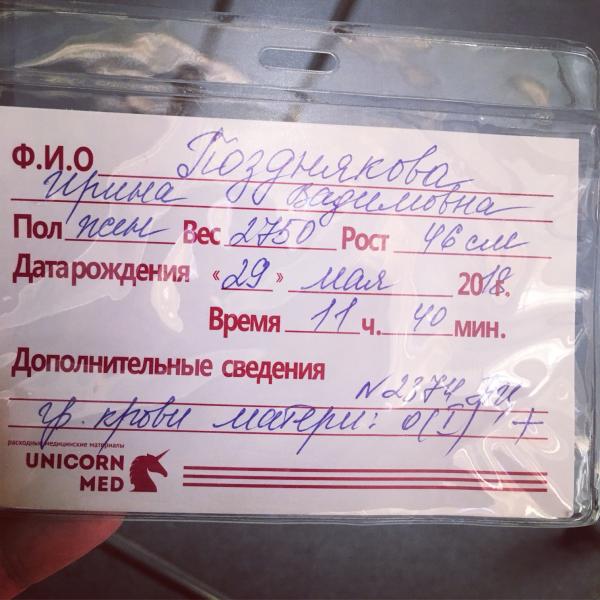 Ф.И.О Позднякова
Ирина Вадимовна
Пол жен Вес 2750 Рост 46 см
Дата рождения «29» мая 2018 г.
Время 11 ч. 40 мин.
Дополнительные сведения
N 2374
гр. крови матери: 0(I) +
расходные медицинские материалы
UNICORN
MED